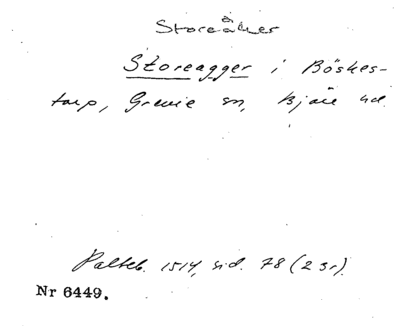 Storeåker
Storeagger i Böskes-
torp, Grevie sn, Bjäre hd.
Palteb. 1514, sid. 78 (2 sr).
Nr 6449.